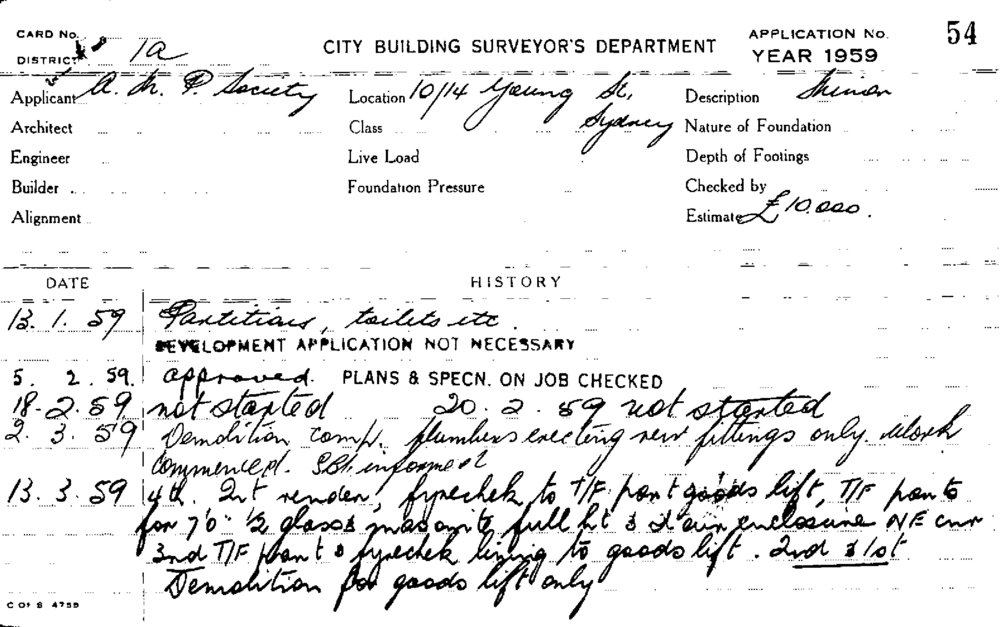 CARD No.
DISTRICT 1a
CITY BUILDING SURVEYOR'S DEPARTMENT
APPLICATION No. 54
YEAR 1959
Applicant A. M. P. Society Location 10/14 Young St, Description Minor
Architect Class Sydney Nature of Foundation
Engineer Live Load Depth of Footings
Builder Foundation Pressure Checked by
Alignment Estimate £10,000.
DATE HISTORY
13. 1. 59 Partitions, toilets etc.
DEVELOPMENT APPLICATION NOT NECESSARY
5. 2. 59. approved. PLANS & SPECN. ON JOB CHECKED
18. 2. 59 not started 20. 2. 59 not started
2. 3. 59 Demolition comp. plumbers erecting new fittings only. Work
commenced. informed
13. 3. 59 4th. Int render, fyrechek to T/F part goods lift, T/F parts
for 7'0" 1/2 glass & masonite full ht & enclosure N/E cnr
3rd T/F part & fyrechek lining to goods lift. 2nd & 1st
Demolition for goods lift only
C OF S 4759